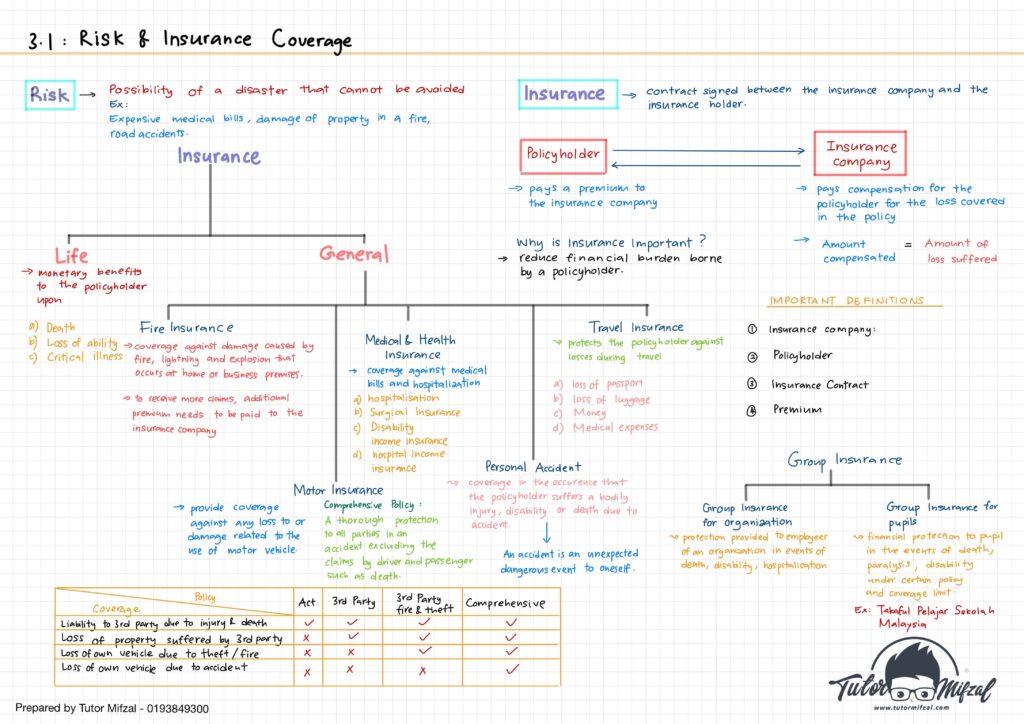 3.1 : Risk & Insurance Coverage
Risk → Possibility of a disaster that cannot be avoided
Ex:
Expensive medical bills, damage of property in a fire,
road accidents.
Insurance → contract signed between the insurance company and the
insurance holder.
Policyholder
Insurance
company
→ pays a premium to
the insurance company
→ pays compensation for the
policyholder for the loss covered
in the policy
→ Amount
compensated
=
Amount of
loss suffered
Why is Insurance Important?
→ reduce financial burden borne
by a policyholder.
Insurance
Life
→ monetary benefits
to the policyholder
upon
a) Death
b) Loss of ability
c) Critical illness
General
Fire Insurance
→ coverage against damage caused by
fire, lightning and explosion that
occurs at home or business premises.
→ to receive more claims, additional
premium needs to be paid to the
insurance company
Medical & Health
Insurance
→ coverage against medical
bills and hospitalization
a) hospitalisation
b) Surgical Insurance
c) Disability
income insurance
d) hospital income
insurance
Travel Insurance
→ protects the policyholder against
losses during travel
a) loss of passport
b) loss of luggage
c) Money
d) Medical expenses
IMPORTANT DEFINITIONS
① Insurance company:
② Policyholder
③ Insurance Contract
④ Premium
Motor Insurance
→ provide coverage
against any loss to or
damage related to the
use of motor vehicle.
Comprehensive Policy:
A thorough protection
to all parties in an
accident excluding the
claims by driver and passenger
such as death.
Personal Accident
→ coverage in the occurence that
the policyholder suffers a bodily
injury, disability or death due to
accident.
An accident is an unexpected
dangerous event to oneself.
Group Insurance
Group Insurance
for organization
→ protection provided to employees
of an organization in events of
death, disability, hospitalisation
Group Insurance for
pupils
→ financial protection to pupil
in the events of death,
paralysis, disability
under certain policy
and coverage limit.
Ex: Takaful Pelajar Sekolah
Malaysia
Policy
Coverage
Act 3rd Party 3rd Party
fire & theft Comprehensive
Liability to 3rd party due to injury & death ✓ ✓ ✓ ✓
Loss of property suffered by 3rd party x ✓ ✓ ✓
Loss of own vehicle due to theft / fire x x ✓ ✓
Loss of own vehicle due to accident x x x ✓
Tutor Mifzal
www.tutormifzal.com
Prepared by Tutor Mifzal - 0193849300